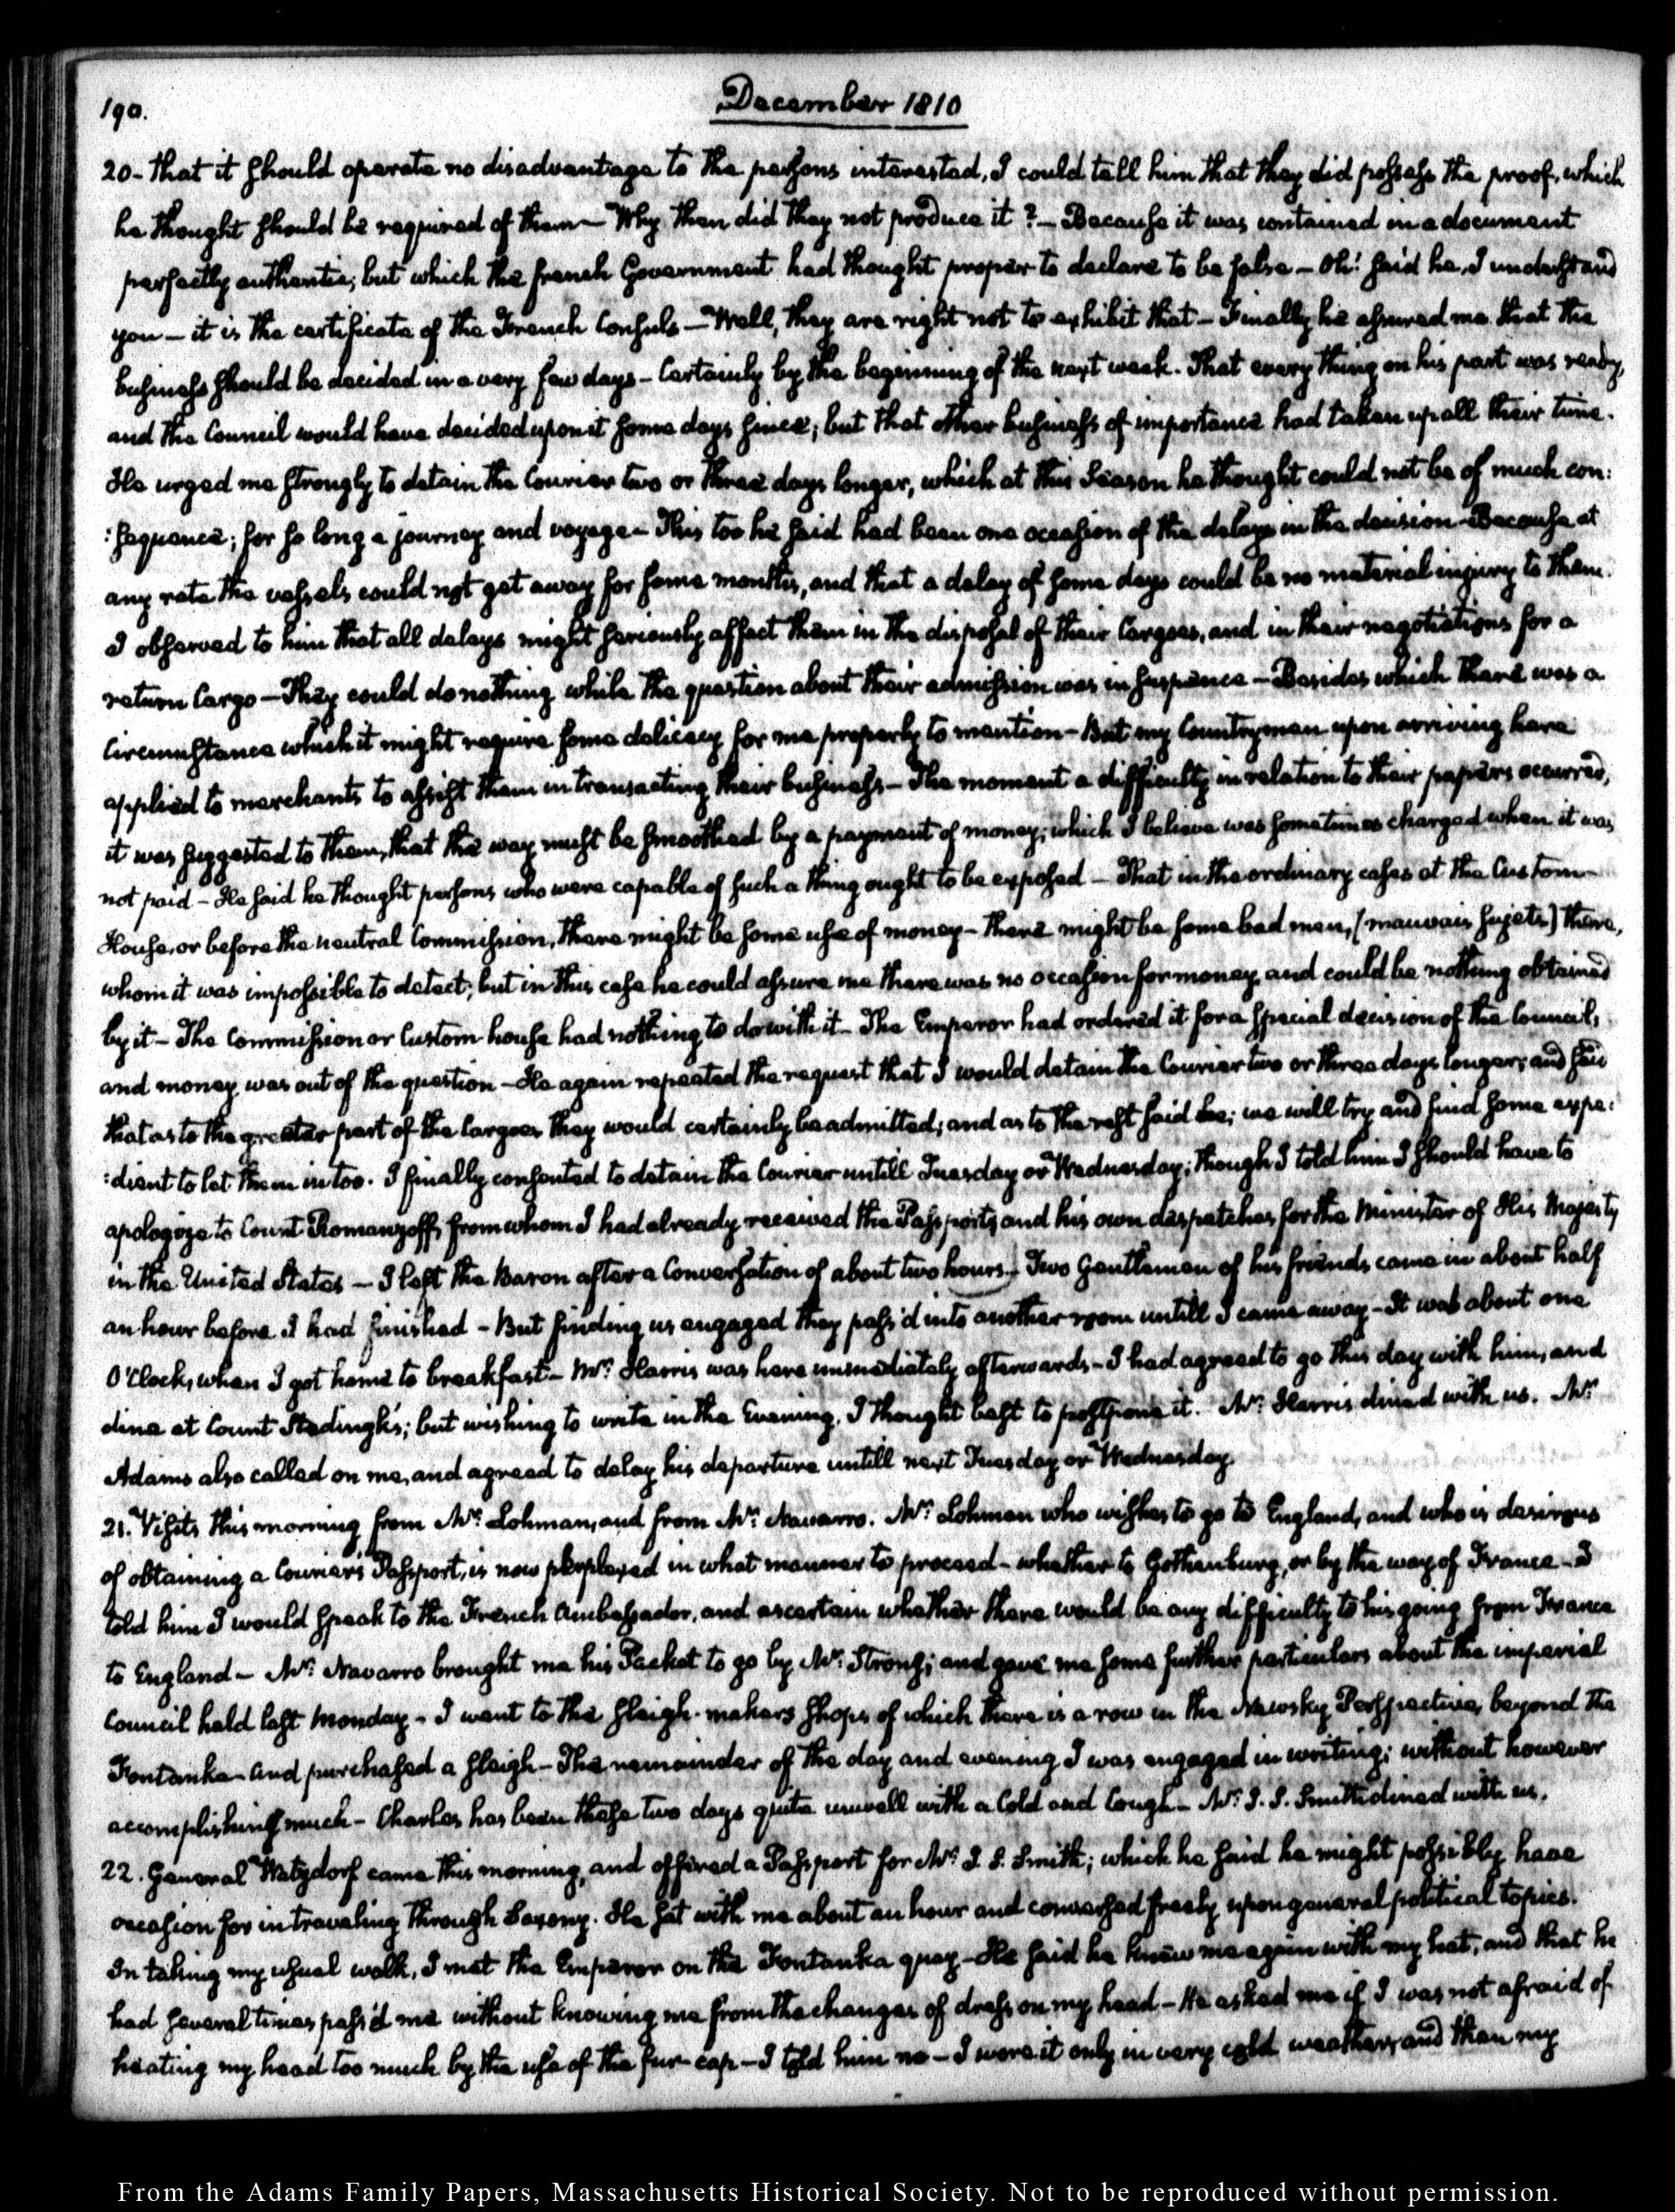 190.
December 1810
20- that it should operate no disadvantage to the persons interested, I could tell him that they did possess the proof, which
he thought should be required of them— Why then did they not produce it?— Because it was contained in a document
perfectly authentic, but which the french Government had thought proper to declare to be false— Oh! said he, I understand
you— it is the certificate of the French Consuls— Well, they are right not to exhibit that— Finally he assured me that the
business should be decided in a very few days— Certainly by the beginning of the next week. That every thing on his part was ready,
and the Council would have decided upon it some days since; but that other business of importance had taken up all their time.
He urged me strongly to detain the Courier two or three days longer, which at this Season he thought could not be of much con:
:sequence; for so long a journey and voyage— This too he said had been one occasion of the delays in the decision— Because at
any rate the vessels could not get away for some months, and that a delay of some days could be no material injury to them.
I observed to him that all delays might seriously affect them in the disposal of their Cargoes, and in their negotiations for a
return Cargo— They could do nothing while the question about their admission was in suspence— Besides which there was a
Circumstance which it might require some delicacy for me properly to mention— But my Countrymen upon arriving here
applied to merchants to assist them in transacting their business— The moment a difficulty in relation to their papers occurred,
it was suggested to them, that the way must be smoothed by a payment of money; which I believe was sometimes charged when it was
not paid— He said he thought persons who were capable of such a thing ought to be exposed— That in the ordinary cases at the Custom-
House, or before the neutral Commission, there might be some use of money— there might be some bad men, (mauvais sujets) there,
whom it was impossible to detect; but in this case he could assure me there was no occasion for money, and could be nothing obtained
by it— The Commission or Custom house had nothing to do with it— The Emperor had ordered it for a special decision of the Council,
and money was out of the question— He again repeated the request that I would detain the Courier two or three days longer; and said
that as to the greater part of the Cargoes they would certainly be admitted; and as to the rest said he; we will try and find some expe:
:dient to let them in too. I finally consented to detain the Courier untill Tuesday or Wednesday; though I told him I should have to
apologize to Count Romanzoff, from whom I had already received the Passports, and his own dispatches for the Minister of His Majesty
in the United States— I left the Baron after a Conversation of about two hours.— Two Gentlemen of his friends came in about half
an hour before I had finished— But finding us engaged they pass'd into another room untill I came away— It was about one
O'Clock, when I got home to breakfast— Mr: Harris was here immediately afterwards— I had agreed to go this day with him, and
dine at Count Stedingk's; but wishing to write in the Evening, I thought best to postpone it. Mr: Harris dined with us. Mr:
Adams also called on me, and agreed to delay his departure untill next Tuesday or Wednesday.
21. Visits this morning from Mr: Lohman, and from Mr: Navarro. Mr: Lohman who wishes to go to England, and who is desirous
of obtaining a Courier's Passport, is now perplexed in what manner to proceed— whether to Gothenburg, or by the way of France— I
told him I would speak to the French Ambassador, and ascertain whether there would be any difficulty to his going from France
to England— Mr: Navarro brought me his Packet to go by Mr: Strong; and gave me some further particulars about the imperial
Council held last Monday— I went to the sleigh-makers shops of which there is a row in the Newsky Perspective, beyond the
Fontanka— and purchased a sleigh— The remainder of the day and evening I was engaged in writing; without however
accomplishing much— Charles has been these two days quite unwell with a Cold and Cough— Mr: J. S. Smith dined with us.
22. General Watzdorf came this morning, and offered a Passport for Mr: J. S. Smith; which he said he might possibly have
occasion for in traveling through Saxony. He sat with me about an hour and conversed freely upon general political topics.
In taking my usual walk, I met the Emperor on the Fontanka quay— He said he knew me again with my hat; and that he
had several times pass'd me without knowing me from the changes of dress on my head— He asked me if I was not afraid of
heating my head too much by the use of the fur-cap— I told him no— I wore it only in very cold weather; and then my
From the Adams Family Papers, Massachusetts Historical Society. Not to be reproduced without permission.